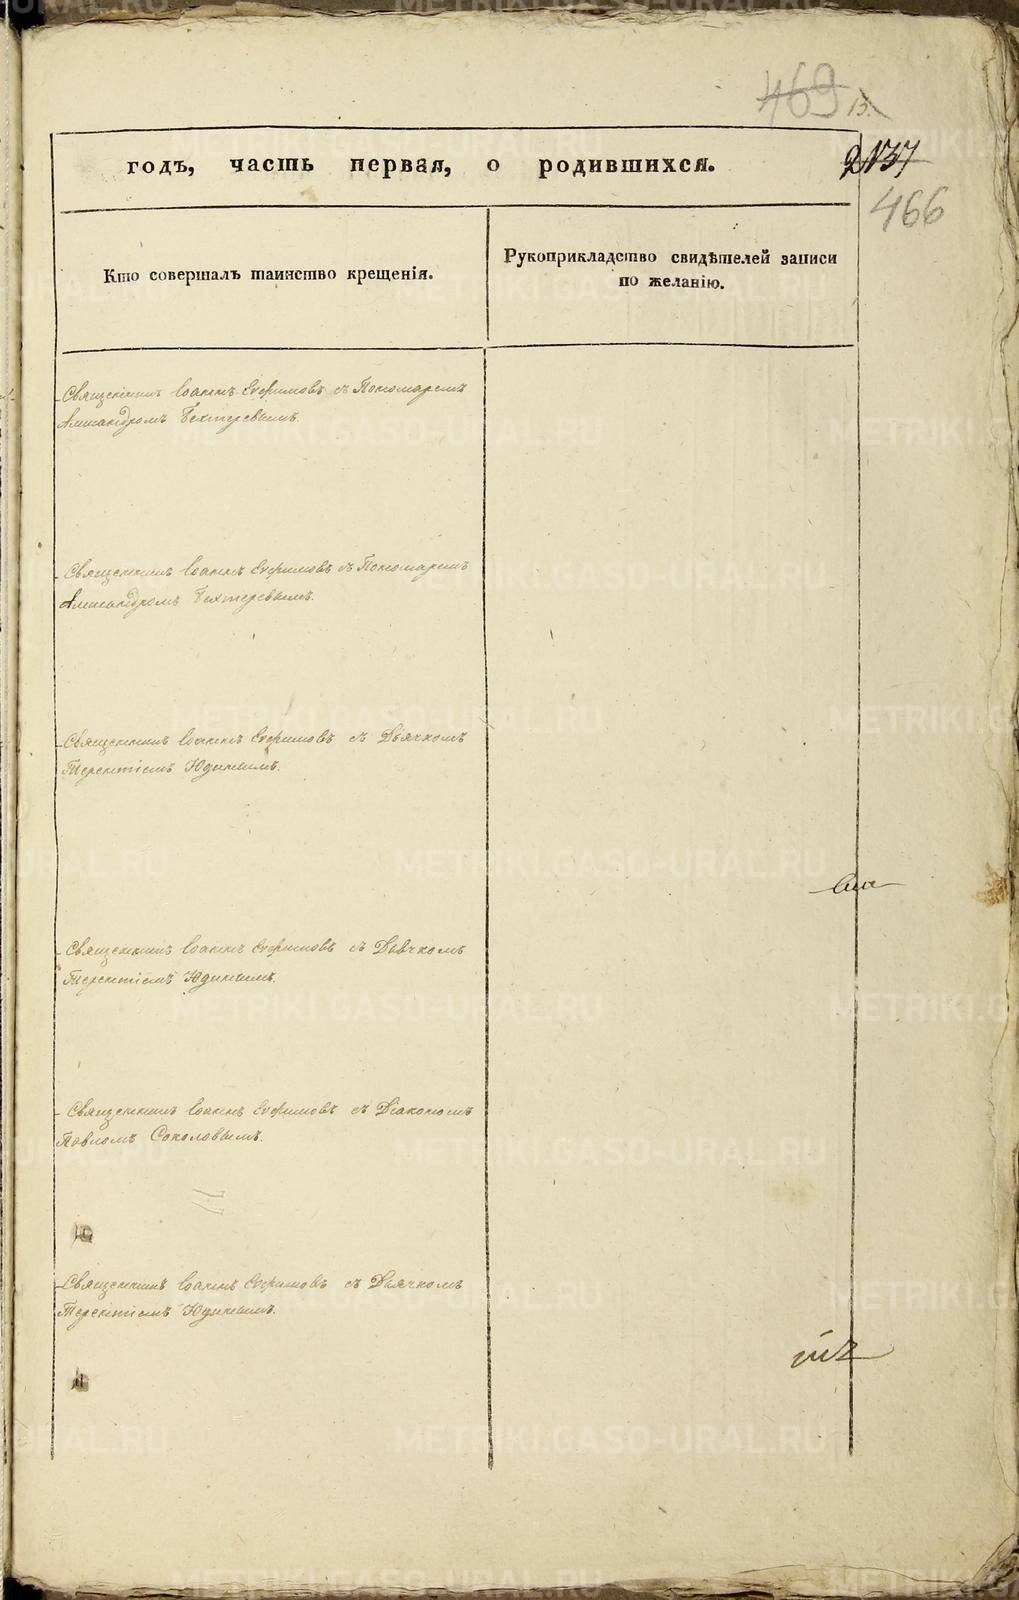 469 13.
годъ, часть первая, о родившихся.
2137
466
Кто совершалъ таинство крещенія.
Рукоприкладство свидѣтелей записи
по желанію.
Священникъ Іоаннъ Ефимовъ съ Пономаремъ
Александромъ Бехтеревымъ.
Священникъ Іоаннъ Ефимовъ съ Пономаремъ
Александромъ Бехтеревымъ.
Священникъ Іоаннъ Ефимовъ съ Дьячкомъ
Терентіемъ Юдинымъ.
Священникъ Іоаннъ Ефимовъ съ Дьячкомъ
Терентіемъ Юдинымъ.
Священникъ Іоаннъ Ефимовъ съ Діакономъ
Павломъ Соколовымъ.
Священникъ Іоаннъ Ефимовъ съ Дьячкомъ
Терентіемъ Юдинымъ.
METRIKI.GASO-URAL.RU